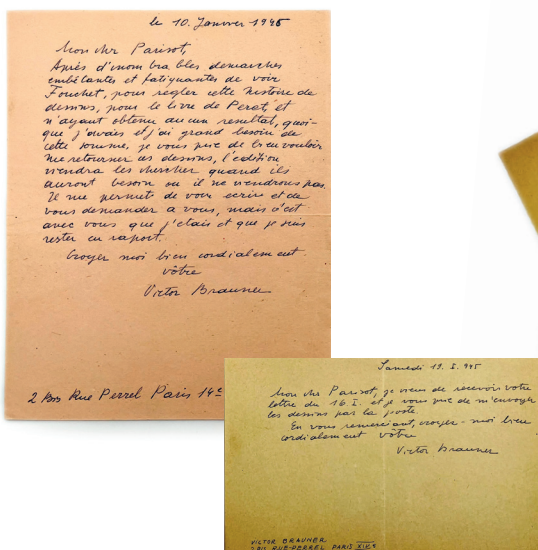 le 10. Janvier 1945
Mon cher Parisot,
Après d'inombrables demarches
embêtantes et fatiguantes de voir
Fouchet, pour regler cette histoire de
dessins, pour le livre de Peret, et
n'ayant obtenu aucun resultat, quoi-
que j'avais et j'ai grand besoin de
cette somme, je vous prie de bien vouloir
me retourner ces dessins, l'edition
viendra les chercher quand ils
auront besoin ou il ne viendrons pas.
Je me permets de vous ecrire et de
vous demander a vous, mais c'est
avec vous que j'etais et que je suis
rester en raport.
Croyez moi bien cordialement
vôtre
Victor Brauner
2 Bis Rue Perrel Paris 14e
Samedi 19. I. 945
Mon cher Parisot, je viens de recevoir votre
lettre du 16 I. et je vous prie de m'envoyer
les dessins par la poste.
En vous remerciant, croyez-moi bien
cordialement vôtre
Victor Brauner
VICTOR BRAUNER
2 BIS RUE-PERREL PARIS XIVe